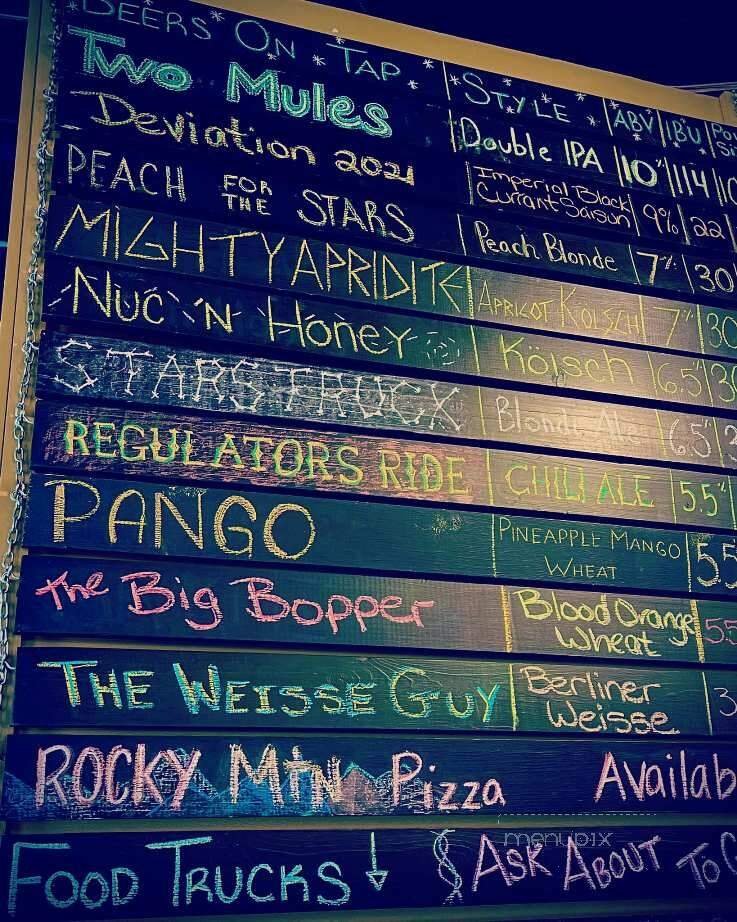 BEERS ON TAP STYLE ABV IBU
Two Mules Double IPA 10% 114
Deviation 2021 Imperial Black Currant Saison 9% 22
PEACH FOR THE STARS Peach Blonde 7% 30
MIGHTY APRIDITE APRICOT KOLSCH 7% 30
Nuc 'N' Honey Kölsch 6.5%
STARSTRUCK Blonde Ale 6.5%
REGULATORS RIDE CHILI ALE 5.5%
PANGO PINEAPPLE MANGO WHEAT 5.5
The Big Bopper Blood Orange Wheat 5.5
THE WEISSE GUY Berliner Weisse 3
ROCKY MTN Pizza
FOOD TRUCKS ↓ ASK ABOUT TO
menupix